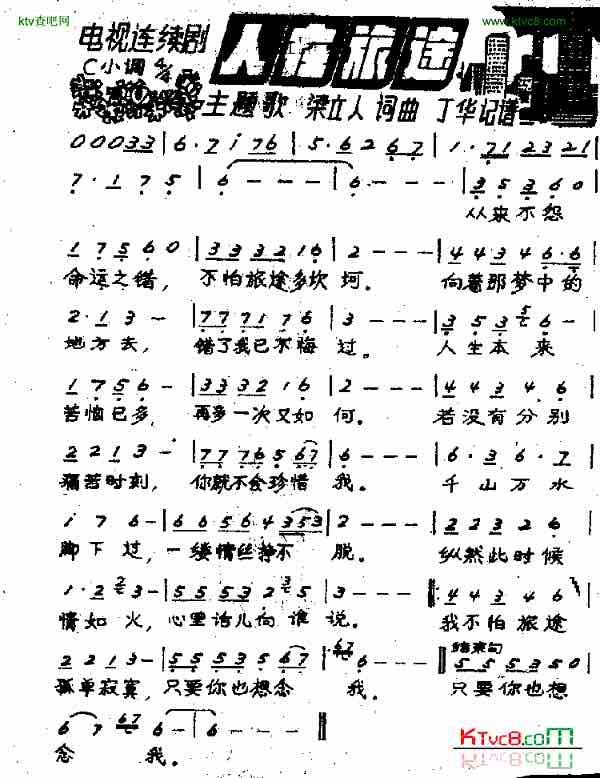 ktv查吧网
www.ktvc8.com
电视连续剧
人在旅途
C小调 4/4
主题歌 梁立人 词曲 丁华记谱
0 0 0 3 3 | 6 · 7 i 7 6 | 5 · 6 2 6 7 | 1 · 7 1 2 3 2 1 |
7 · 1 7 5 | 6 - - - | 6 - - - | 3 5 3 6 0 |
从来不怨
1 7 5 6 0 | 3 3 3 3 2 1 6 | 2 - - - | 4 4 3 4 6 · 6 |
命运之错, 不怕旅途多坎 坷。 向着那梦中的
2 · 1 3 - | 7 7 7 1 7 6 | 3 - - - | 3 5 3 5 6 - |
地方去, 错了我已不悔 过。 人生本 来
1 7 5 6 - | 3 3 3 2 1 6 | 2 - - - | 4 4 3 4 6 |
苦恼已多, 再多一次又如 何。 若没有分别
2 2 1 3 - | 7 7 7 6 5 6 7 | 6 - - - | 6 · 3 6 · 7 |
痛苦时刻, 你就不会珍惜 我。 千山万水
i 7 6 - | 6 6 5 6 4 3 5 3 | 2 - - - | 2 2 3 2 6 |
脚下过, 一缕情丝挣不 脱。 纵然此时候
1 · 2 3 - | 5 5 5 3 2 3 5 | 3 - - - | 4 4 3 4 6 |
情如火, 心里话儿向谁 说。 我不怕旅途
结束句
2 2 1 3 - | 5 5 5 3 5 6 7 | 6 - - | 5 5 5 3 5 0 |
孤单寂寞, 只要你也想念 我。 只要你也想
6 7 6 7 6 - | 6 - - - ‖
念 我。
KTvc8.com
www.ktvc8.com